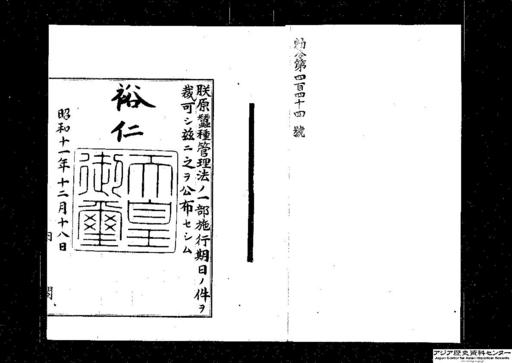 勅令第四百四十四號
朕原蠶種管理法ノ一部施行期日ノ件ヲ
裁可シ茲ニ之ヲ公布セシム
裕仁
天皇御璽
昭和十一年十二月十八日
内閣
アジア歴史資料センター
Japan Center for Asian Historical Records